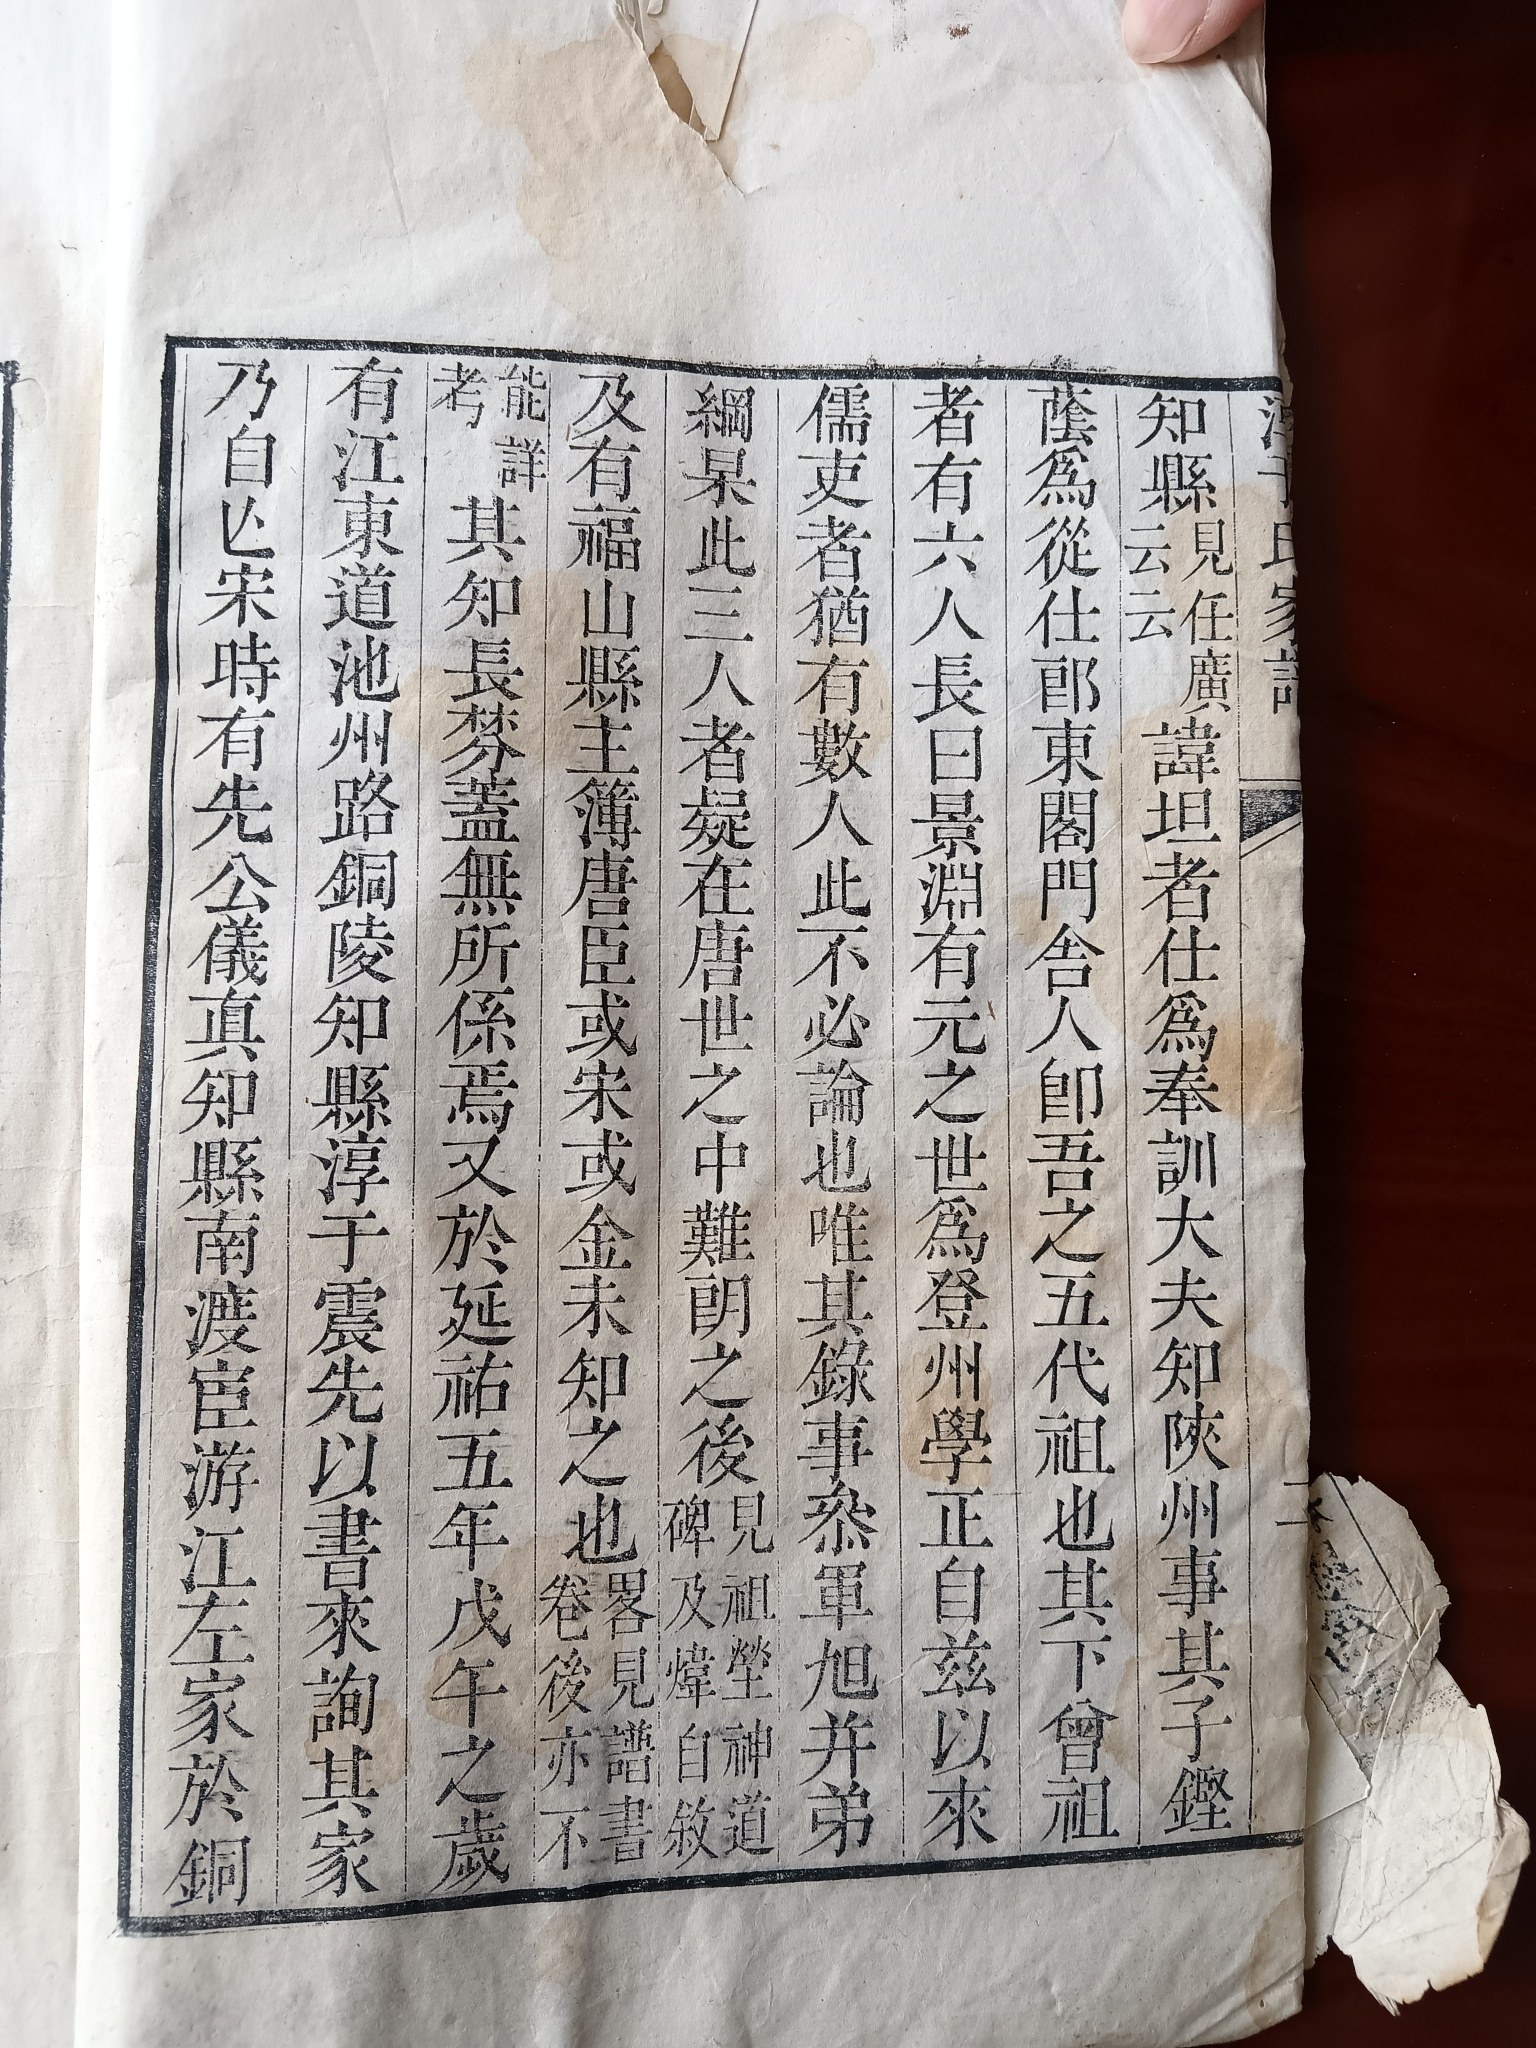 淳于氏家譜
知縣見任廣云云諱坦者仕爲奉訓大夫知陜州事其子鏗
蔭爲從仕郎東閣門舍人卽吾之五代祖也其下曾祖
者有六人長曰景淵有元之世爲登州學正自茲以來
儒吏者猶有數人此不必論也唯其錄事叅軍旭并弟
綱杲此三人者疑在唐世之中難朗之後見祖塋神道碑及煒自敘
及有福山縣主簿唐臣或宋或金未知之也畧見譜書卷後亦不
能詳考其知長棼蓋無所係焉又於延祐五年戊午之歲
有江東道池州路銅陵知縣淳于震先以書來詢其家
乃自亾宋時有先公儀真知縣南渡宦游江左家於銅